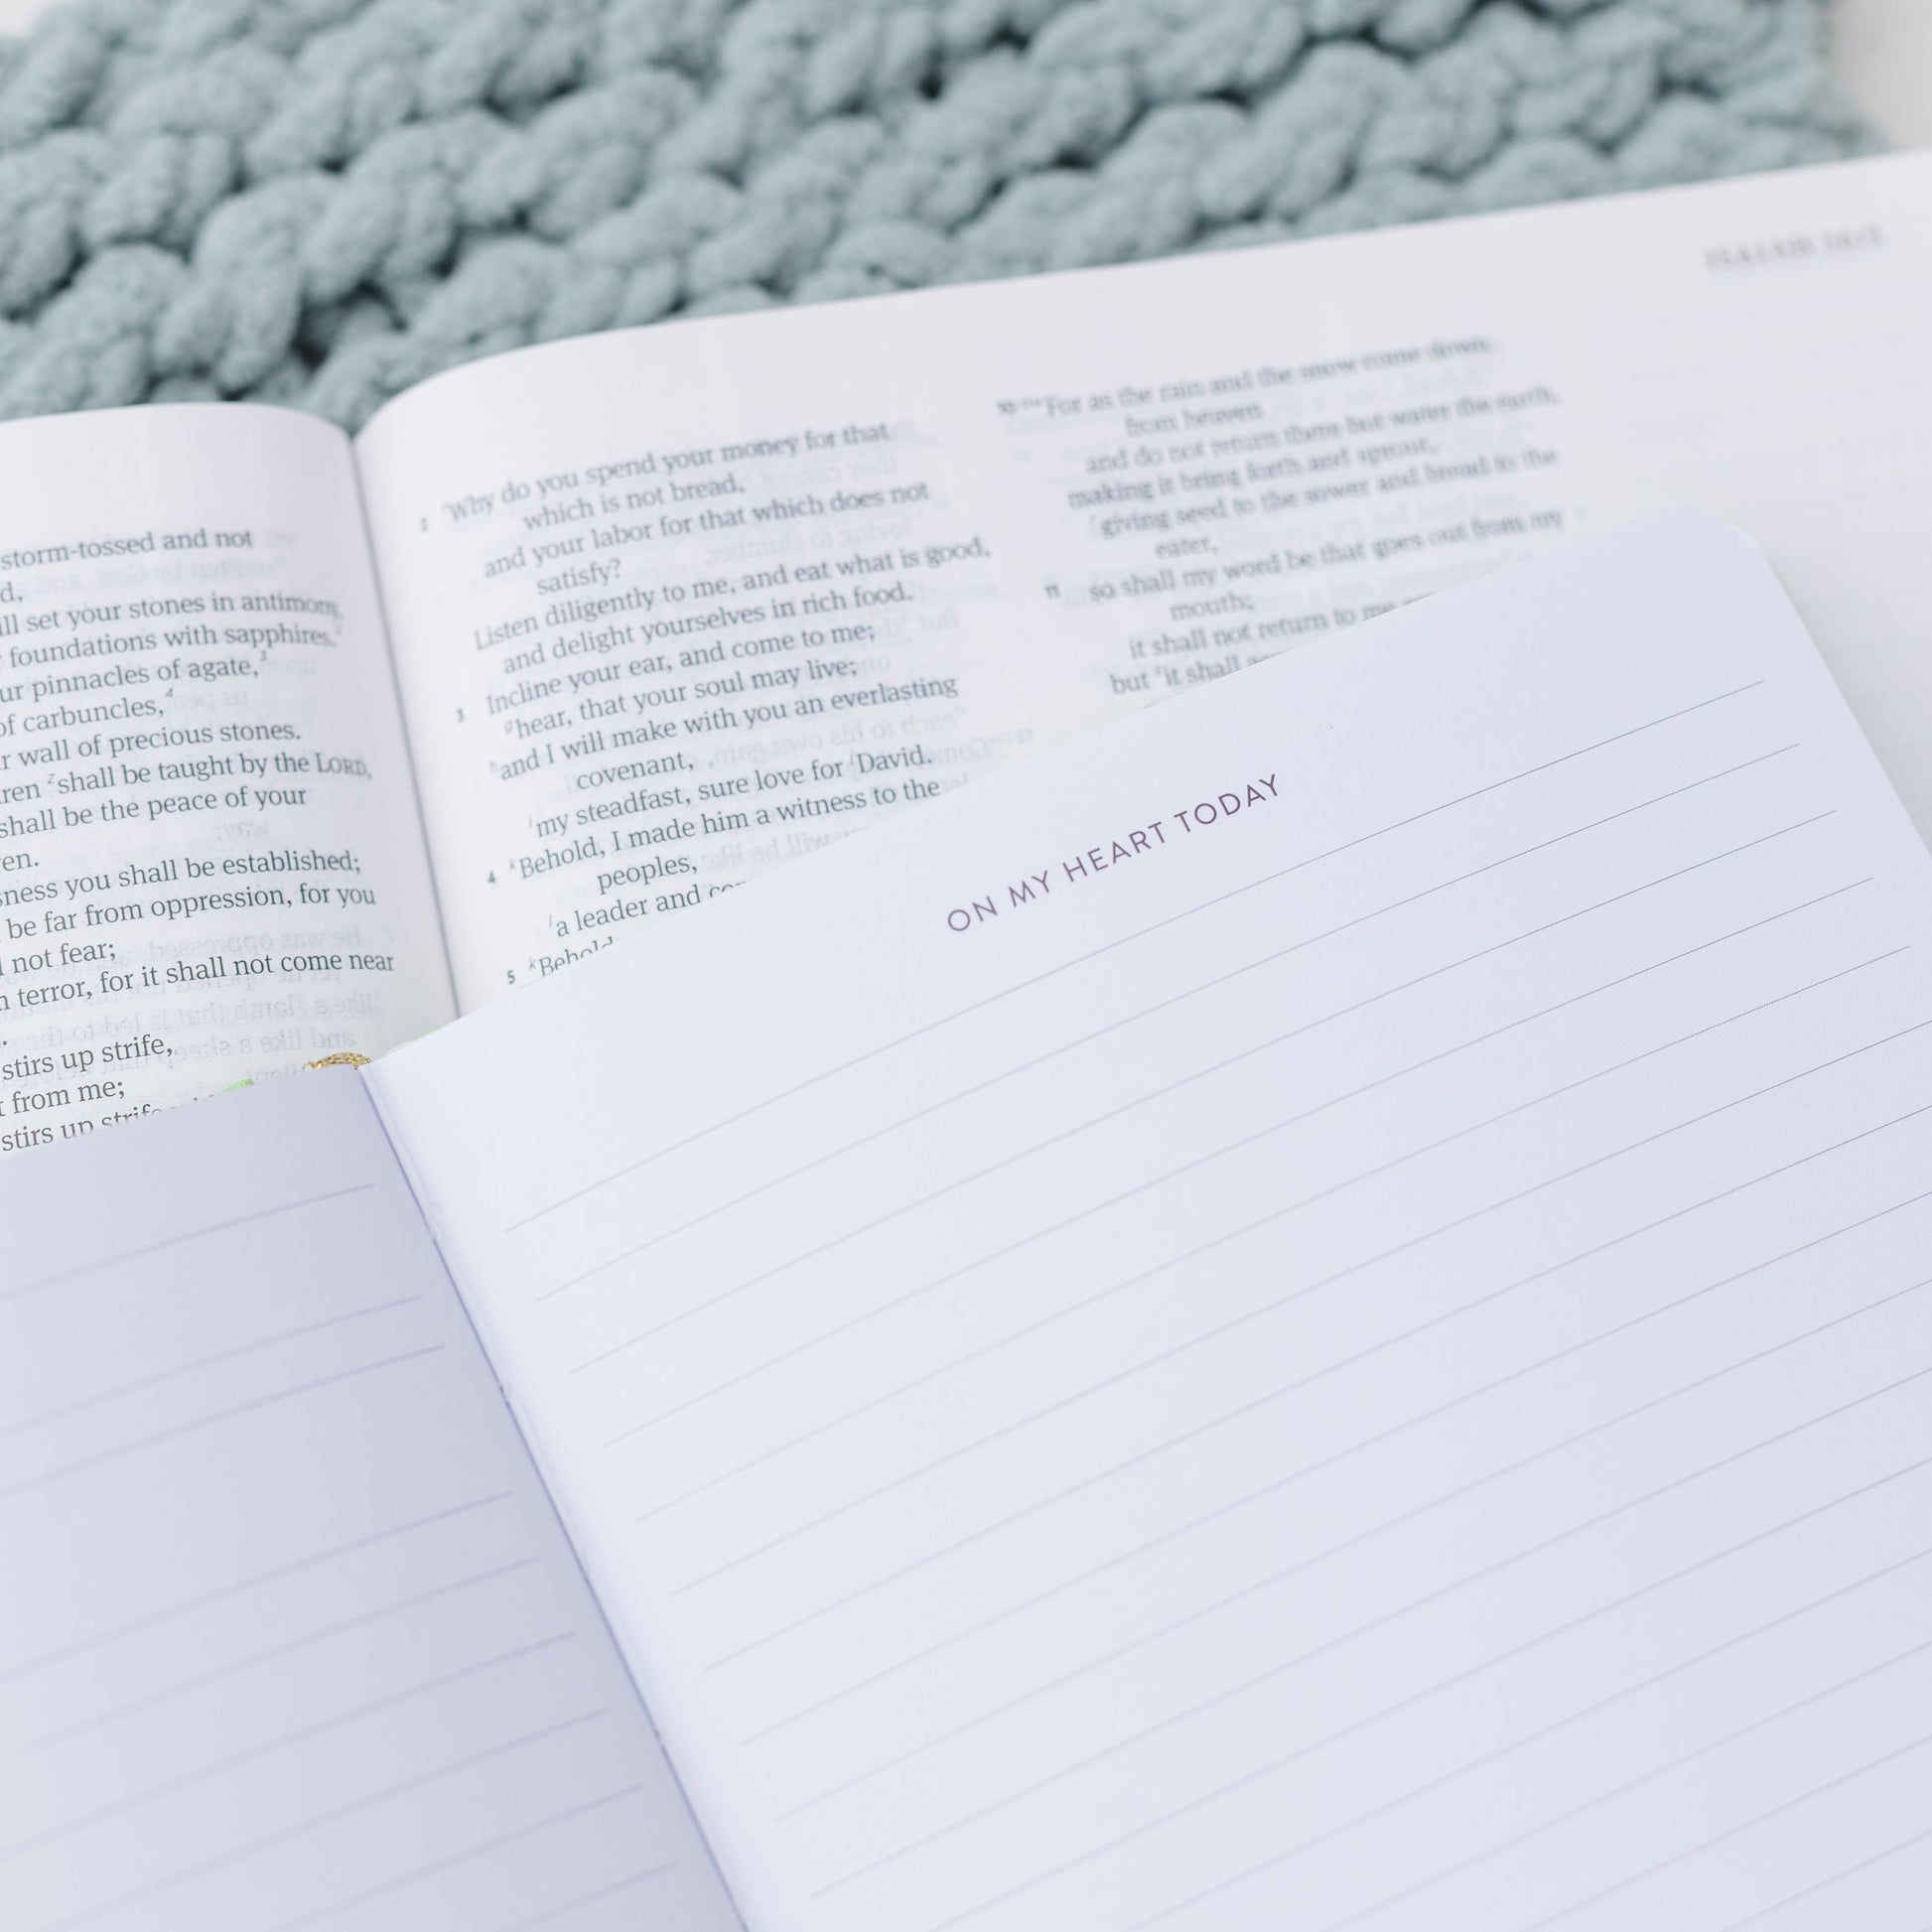 storm-tossed and not
d,
ill set your stones in antimony,
foundations with sapphires.³
ur pinnacles of agate,³
of carbuncles,⁴
r wall of precious stones.
ren ᶻshall be taught by the LORD,
shall be the peace of your
en.
sness you shall be established;
be far from oppression, for you
not fear;
terror, for it shall not come near
stirs up strife,
from me;
stirs up strife
2 Why do you spend your money for that
which is not bread,
and your labor for that which does not
satisfy?
Listen diligently to me, and eat what is good,
and delight yourselves in rich food.
3 Incline your ear, and come to me;
ᵍhear, that your soul may live;
ʰand I will make with you an everlasting
covenant,
ⁱmy steadfast, sure love for ʲDavid.
4 ᵏBehold, I made him a witness to the
peoples,
ˡa leader and
5 ᵏBehold
10 For as the rain and the snow come down
from heaven
and do not return there but water the earth,
making it bring forth and sprout,
giving seed to the sower and bread to the
eater,
11 so shall my word be that goes out from my
mouth;
it shall not return to me
but it shall
ISAIAH
ON MY HEART TODAY